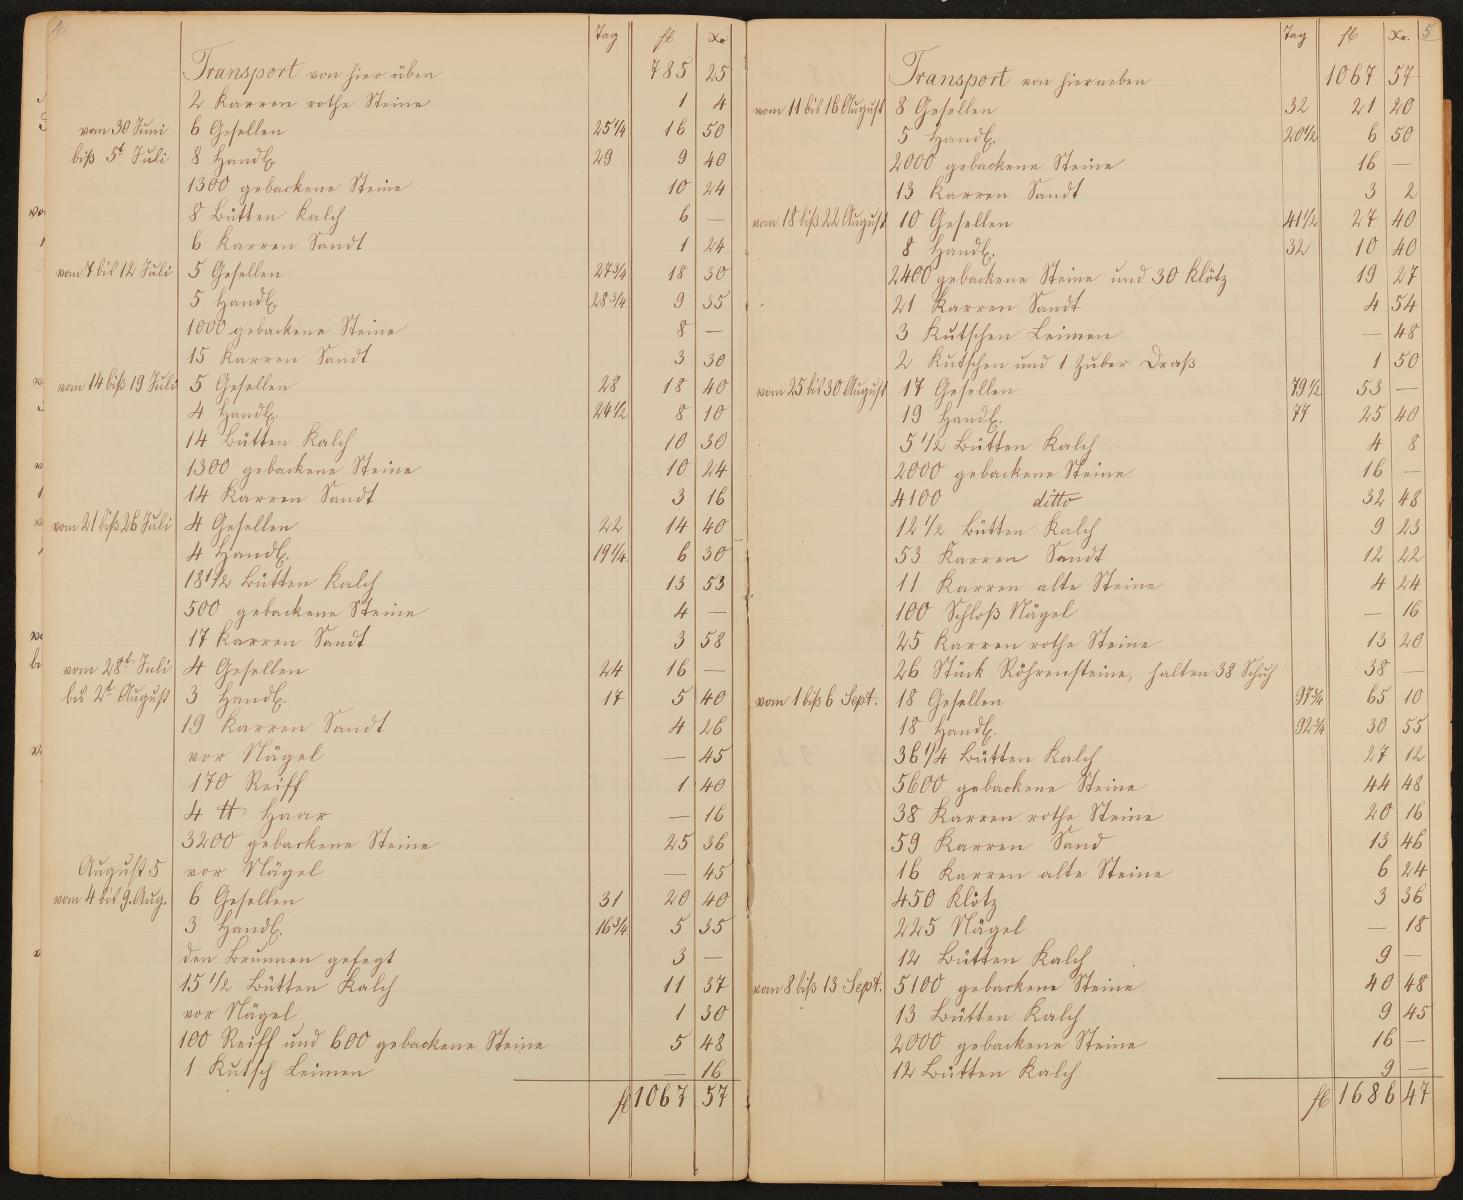 4
Tag fl Xr
Transport von hier üben 785 25
2 Karren rothe Steine 1 4
vom 30 Juni 6 Gesellen 25 1/4 16 50
biß 5t Juli 8 Handl. 29 9 40
1300 gebackene Steine 10 24
8 Bütten Kalch 6 —
6 Karren Sandt 1 24
vom 7 bis 12 Juli 5 Gesellen 27 3/4 18 30
5 Handl. 28 3/4 9 35
1000 gebackene Steine 8 —
15 Karren Sandt 3 30
vom 14 biß 19 Juli 5 Gesellen 28 18 40
4 Handl. 24 1/2 8 10
14 Bütten Kalch 10 30
1300 gebackene Steine 10 24
14 Karren Sandt 3 16
vom 21 biß 26 Juli 4 Gesellen 22 14 40
4 Handl. 19 1/4 6 30
18 1/2 Bütten Kalch 13 53
500 gebackene Steine 4 —
17 Karren Sandt 3 58
vom 28t Juli 4 Gesellen 24 16 —
bis 2t August 3 Handl. 17 5 40
19 Karren Sandt 4 26
vor Nägel — 45
170 Reiff 1 40
4 ℔ Haar — 16
3200 gebackene Steine 25 36
August 5 vor Nägel — 45
vom 4 bis 9. Aug. 6 Gesellen 31 20 40
3 Handl. 16 3/4 5 35
den Brunnen gefegt 3 —
15 1/2 Bütten Kalch 11 37
vor Nägel 1 30
100 Reiff und 600 gebackene Steine 5 48
1 Kutsch Leimen — 16
fl 1067 57
5
Tag fl Xr.
Transport von hierneben 1067 57
vom 11 bis 16 August 8 Gesellen 32 21 20
5 Handl. 20 1/2 6 50
2000 gebackene Steine 16 —
13 Karren Sandt 3 2
vom 18 biß 22 August 10 Gesellen 41 1/2 27 40
8 Handl. 32 10 40
2400 gebackene Steine und 30 Klötz 19 27
21 Karren Sandt 4 54
3 Kutschen Leimen — 48
2 Kutschen und 1 Zuber Draß 1 50
vom 25 bis 30 August 17 Gesellen 79 1/2 53 —
19 Handl. 77 25 40
5 1/2 Bütten Kalch 4 8
2000 gebackene Steine 16 —
4100 ditto 32 48
12 1/2 Bütten Kalch 9 23
53 Karren Sandt 12 22
11 Karren alte Steine 4 24
100 Schloß Nägel — 16
25 Karren rothe Steine 13 20
26 Stück Röhrensteine, halten 38 Schuh 38 —
vom 1 biß 6 Sept. 18 Gesellen 97 3/4 65 10
18 Handl. 92 3/4 30 55
36 1/4 Bütten Kalch 27 12
5600 gebackene Steine 44 48
38 Karren rothe Steine 20 16
59 Karren Sand 13 46
16 Karren alte Steine 6 24
450 Klötz 3 36
225 Nägel — 18
12 Bütten Kalch 9 —
vom 8 biß 13 Sept. 5100 gebackene Steine 40 48
13 Bütten Kalch 9 45
2000 gebackene Steine 16 —
12 Bütten Kalch 9 —
fl 1686 47